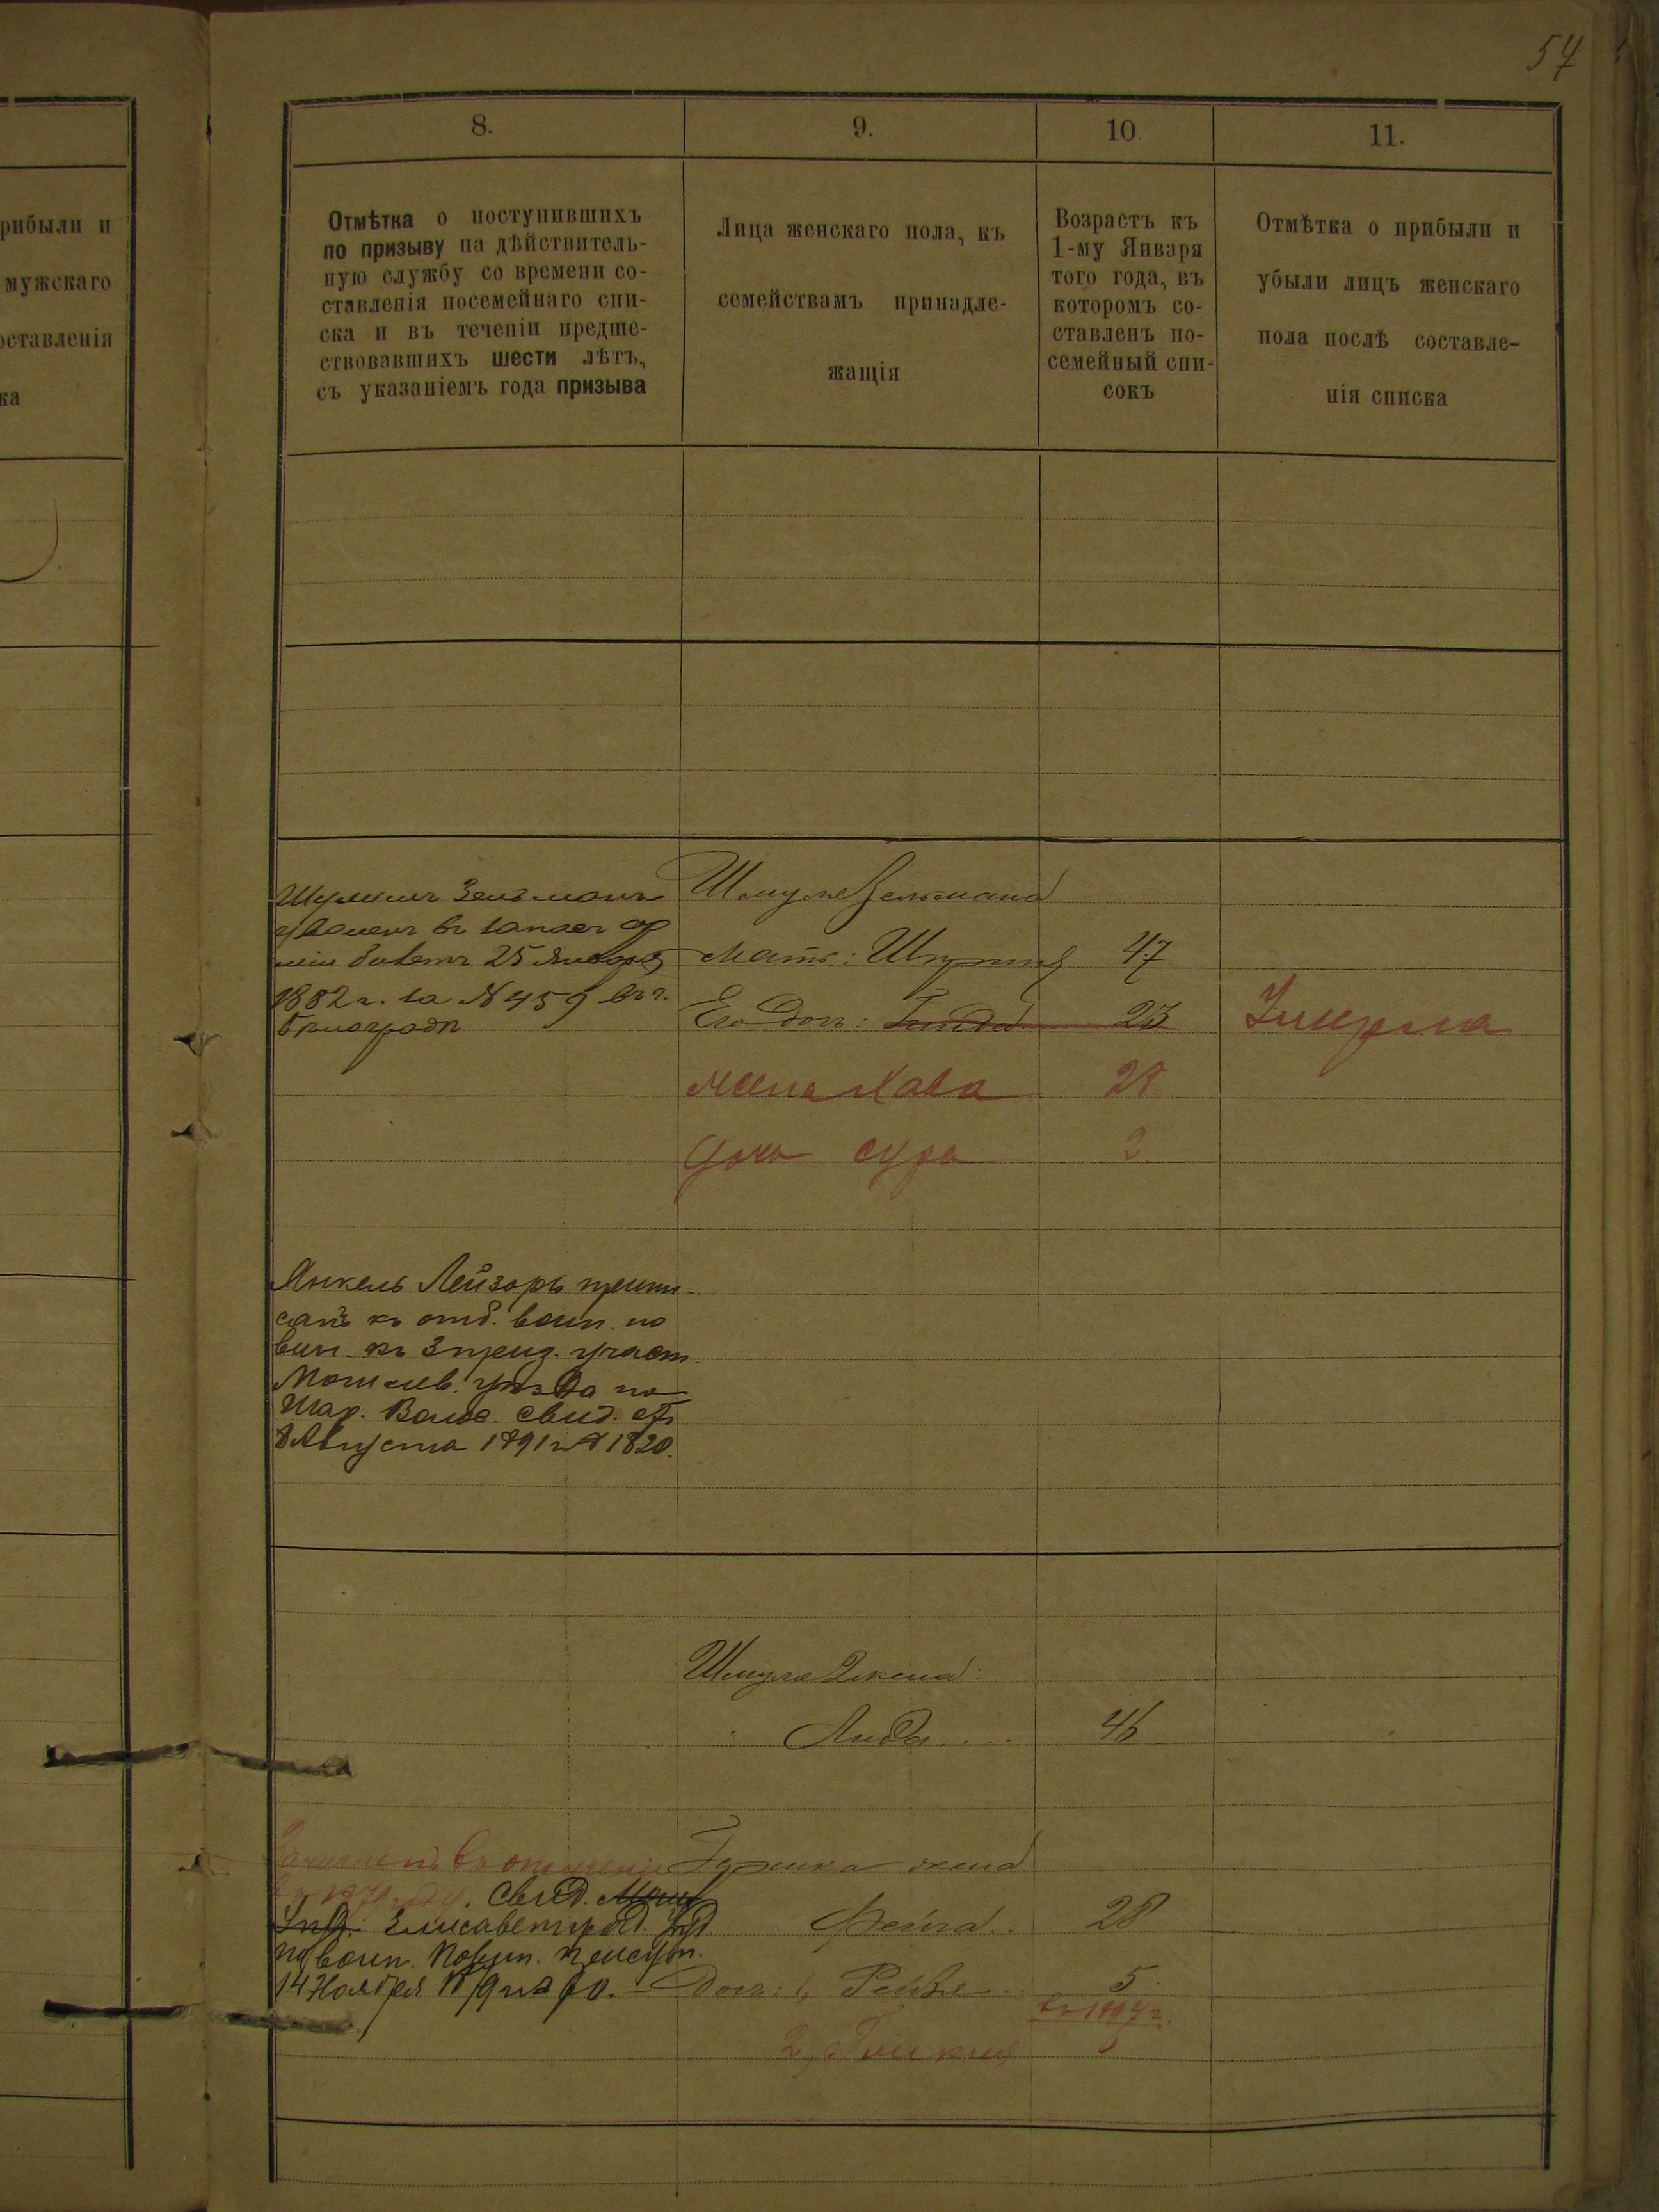 54
рибыли и
мужскаго
оставленія
ка
8.
9.
10
11.
Отмѣтка о поступившихъ
по призыву на дѣйствитель-
ную службу со времени со-
ставленія посемейнаго спи-
ска и въ теченіи предше-
ствовавшихъ шести лѣтъ,
съ указаніемъ года призыва
Лица женскаго пола, къ
семействамъ принадле-
жащія
Возрастъ къ
1-му Января
того года, въ
которомъ со-
ставленъ по-
семейный спи-
сокъ
Отмѣтка о прибыли и
убыли лицъ женскаго
пола послѣ составле-
нія списка
Зельманъ
въ запас ар
міи билетъ 25 Января
1882 г. за N 459 въ г.
Шмуля Зельмана
Мать: 47
Его доч: 23
Умерла
жена Хава 28
дочь Сура 2
Янкель Лейзоръ припи
санъ къ отб. воин. по
вин. къ 3 приз. участ
Могилев. уѣзда по
Шар. Волос. свид. отъ
8 Августа 1891 г N 1820.
Шмуля 2 жена:
Лида 46
въ ополченіе
свид.
Елисаветград.
по воин. повин. присут.
14 Ноября
жена
Фейга 28
Доч: 1, Рейзя 5
2,